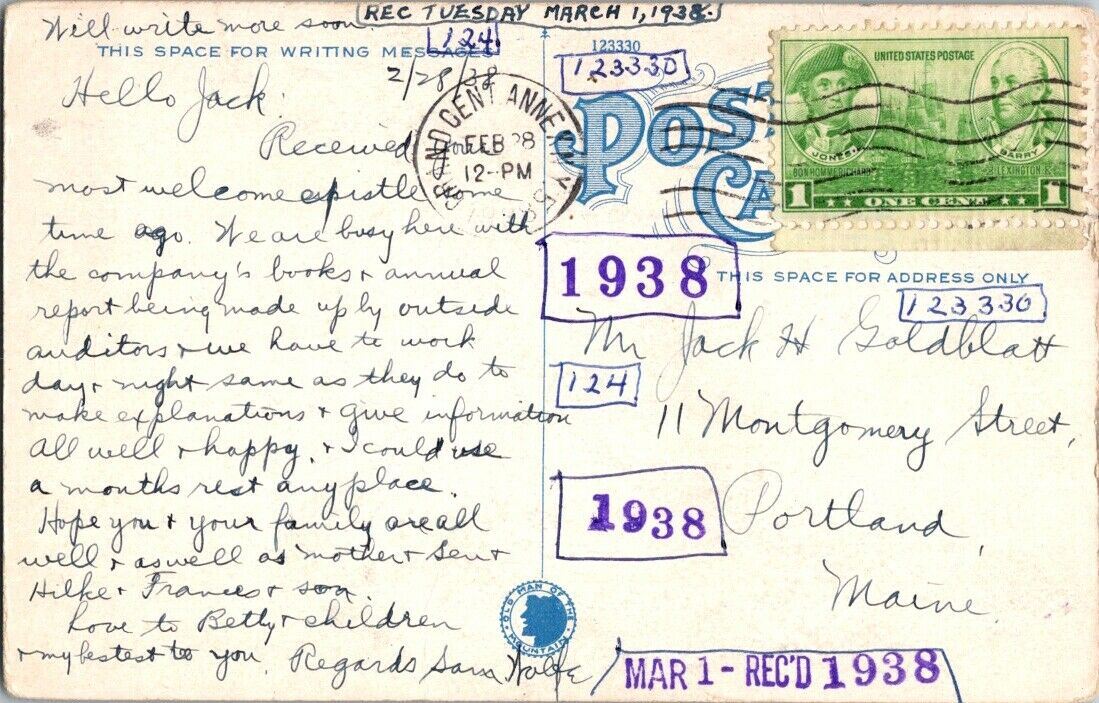 Will write more soon.
REC TUESDAY MARCH 1, 1938.
124.
THIS SPACE FOR WRITING MESSAGES
123330
123330
2/28/38
Hello Jack:
Received your
most welcome epistle some
time ago. We are busy here with
the company's books & annual
report being made up by outside
auditors & we have to work
day & night same as they do to
make explanations & give information
all well & happy, & I could use
a months rest any place.
Hope you & your family are all
well & as well as mother &
Hilke & Frances & son.
Love to Betty & children
& my bestest to you. Regards Sam Wolfe
GRAND CENT ANNEX
FEB 28
12-PM
POST
CA
UNITED STATES POSTAGE
JONES
BARRY
BON HOMME RICHARD
LEXINGTON
1 ONE CENT 1
1938
THIS SPACE FOR ADDRESS ONLY
123330
Mr Jack H Goldblatt
124
11 Montgomery Street,
1938
Portland,
Maine
OLD MAN OF THE
MOUNTAIN
MAR 1 - REC'D 1938